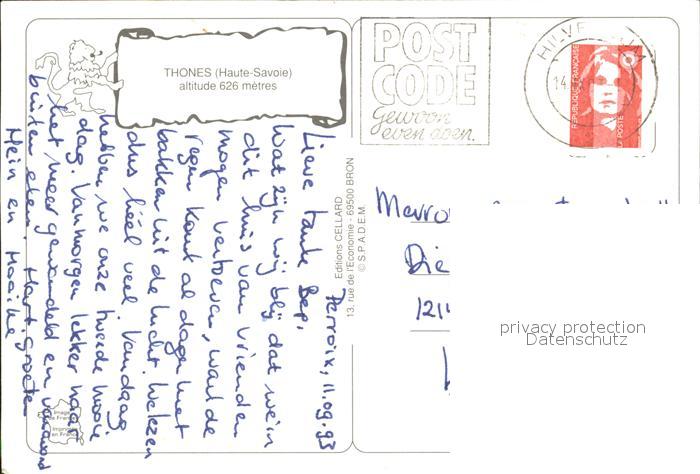 THONES (Haute-Savoie)
altitude 626 mètres
POST
CODE
gewoon
even doen.
HILVE
14
REPUBLIQUE FRANÇAISE
LA POSTE
Editions CELLARD
13, rue de l'Economie - 69500 BRON
© S.P.A.D.E.M.
Perroix, 11.09.93
Lieve tante Bep,
Wat zijn wij blij dat we in
dit huis van vrienden
mogen vertoeven, want de
regen komt al dagen met
bakken uit de lucht. We lezen
dus héél veel. Vandaag
hebben we onze tweede mooie
dag. Vanmorgen lekker naar
het meer gewandeld en vanavond
buiten eten. Hart. groeten
Hein en Maaike
Mevro
Die
121
Image
de France
Imprimé
en France
privacy protection
Datenschutz